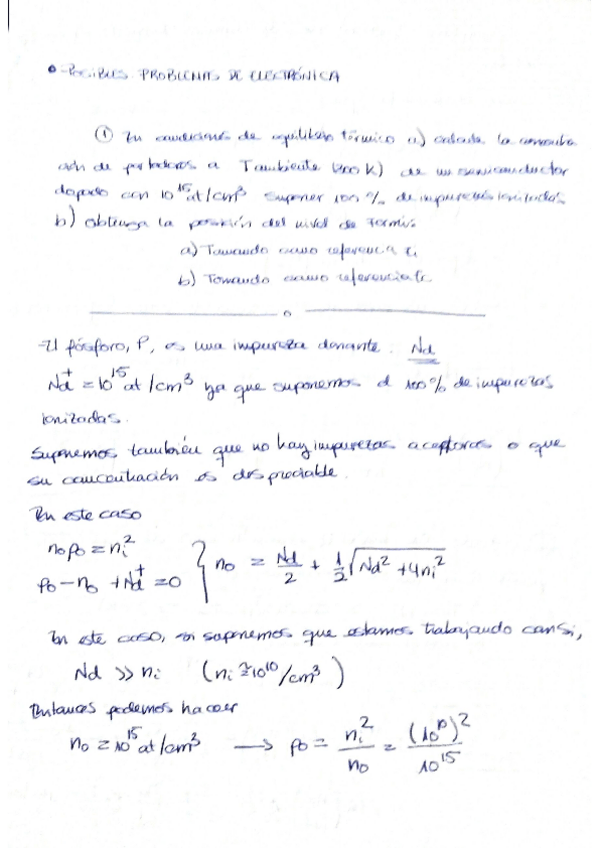 • Posibles PROBLEMAS DE ELECTRÓNICA
① En condiciones de equilibrio térmico a) calcula la concentra
ción de portadores a Tambiente (300 K) de un semiconductor
dopado con 10^15 at/cm³ suponer 100 % de impurezas ionizadas.
b) obtenga la posición del nivel de Fermi:
a) Tomando como referencia Ei
b) Tomando como referencia Ec
o
- El fósforo, P, es una impureza donante. Nd
Nd⁺ = 10^15 at/cm³ ya que suponemos el 100% de impurezas
ionizadas.
Suponemos también que no hay impurezas aceptoras o que
su concentración es despreciable.
En este caso
n₀p₀ = nᵢ²
p₀ - n₀ + Nd⁺ = 0 } n₀ = Nd/2 + 1/2 √(Nd² + 4nᵢ²)
En este caso, si suponemos que estamos trabajando con Si,
Nd >> nᵢ (nᵢ ≅ 10^10/cm³)
Entonces podemos hacer
n₀ ≅ 10^15 at/cm³ → p₀ = nᵢ²/n₀ = (10^10)²/10^15